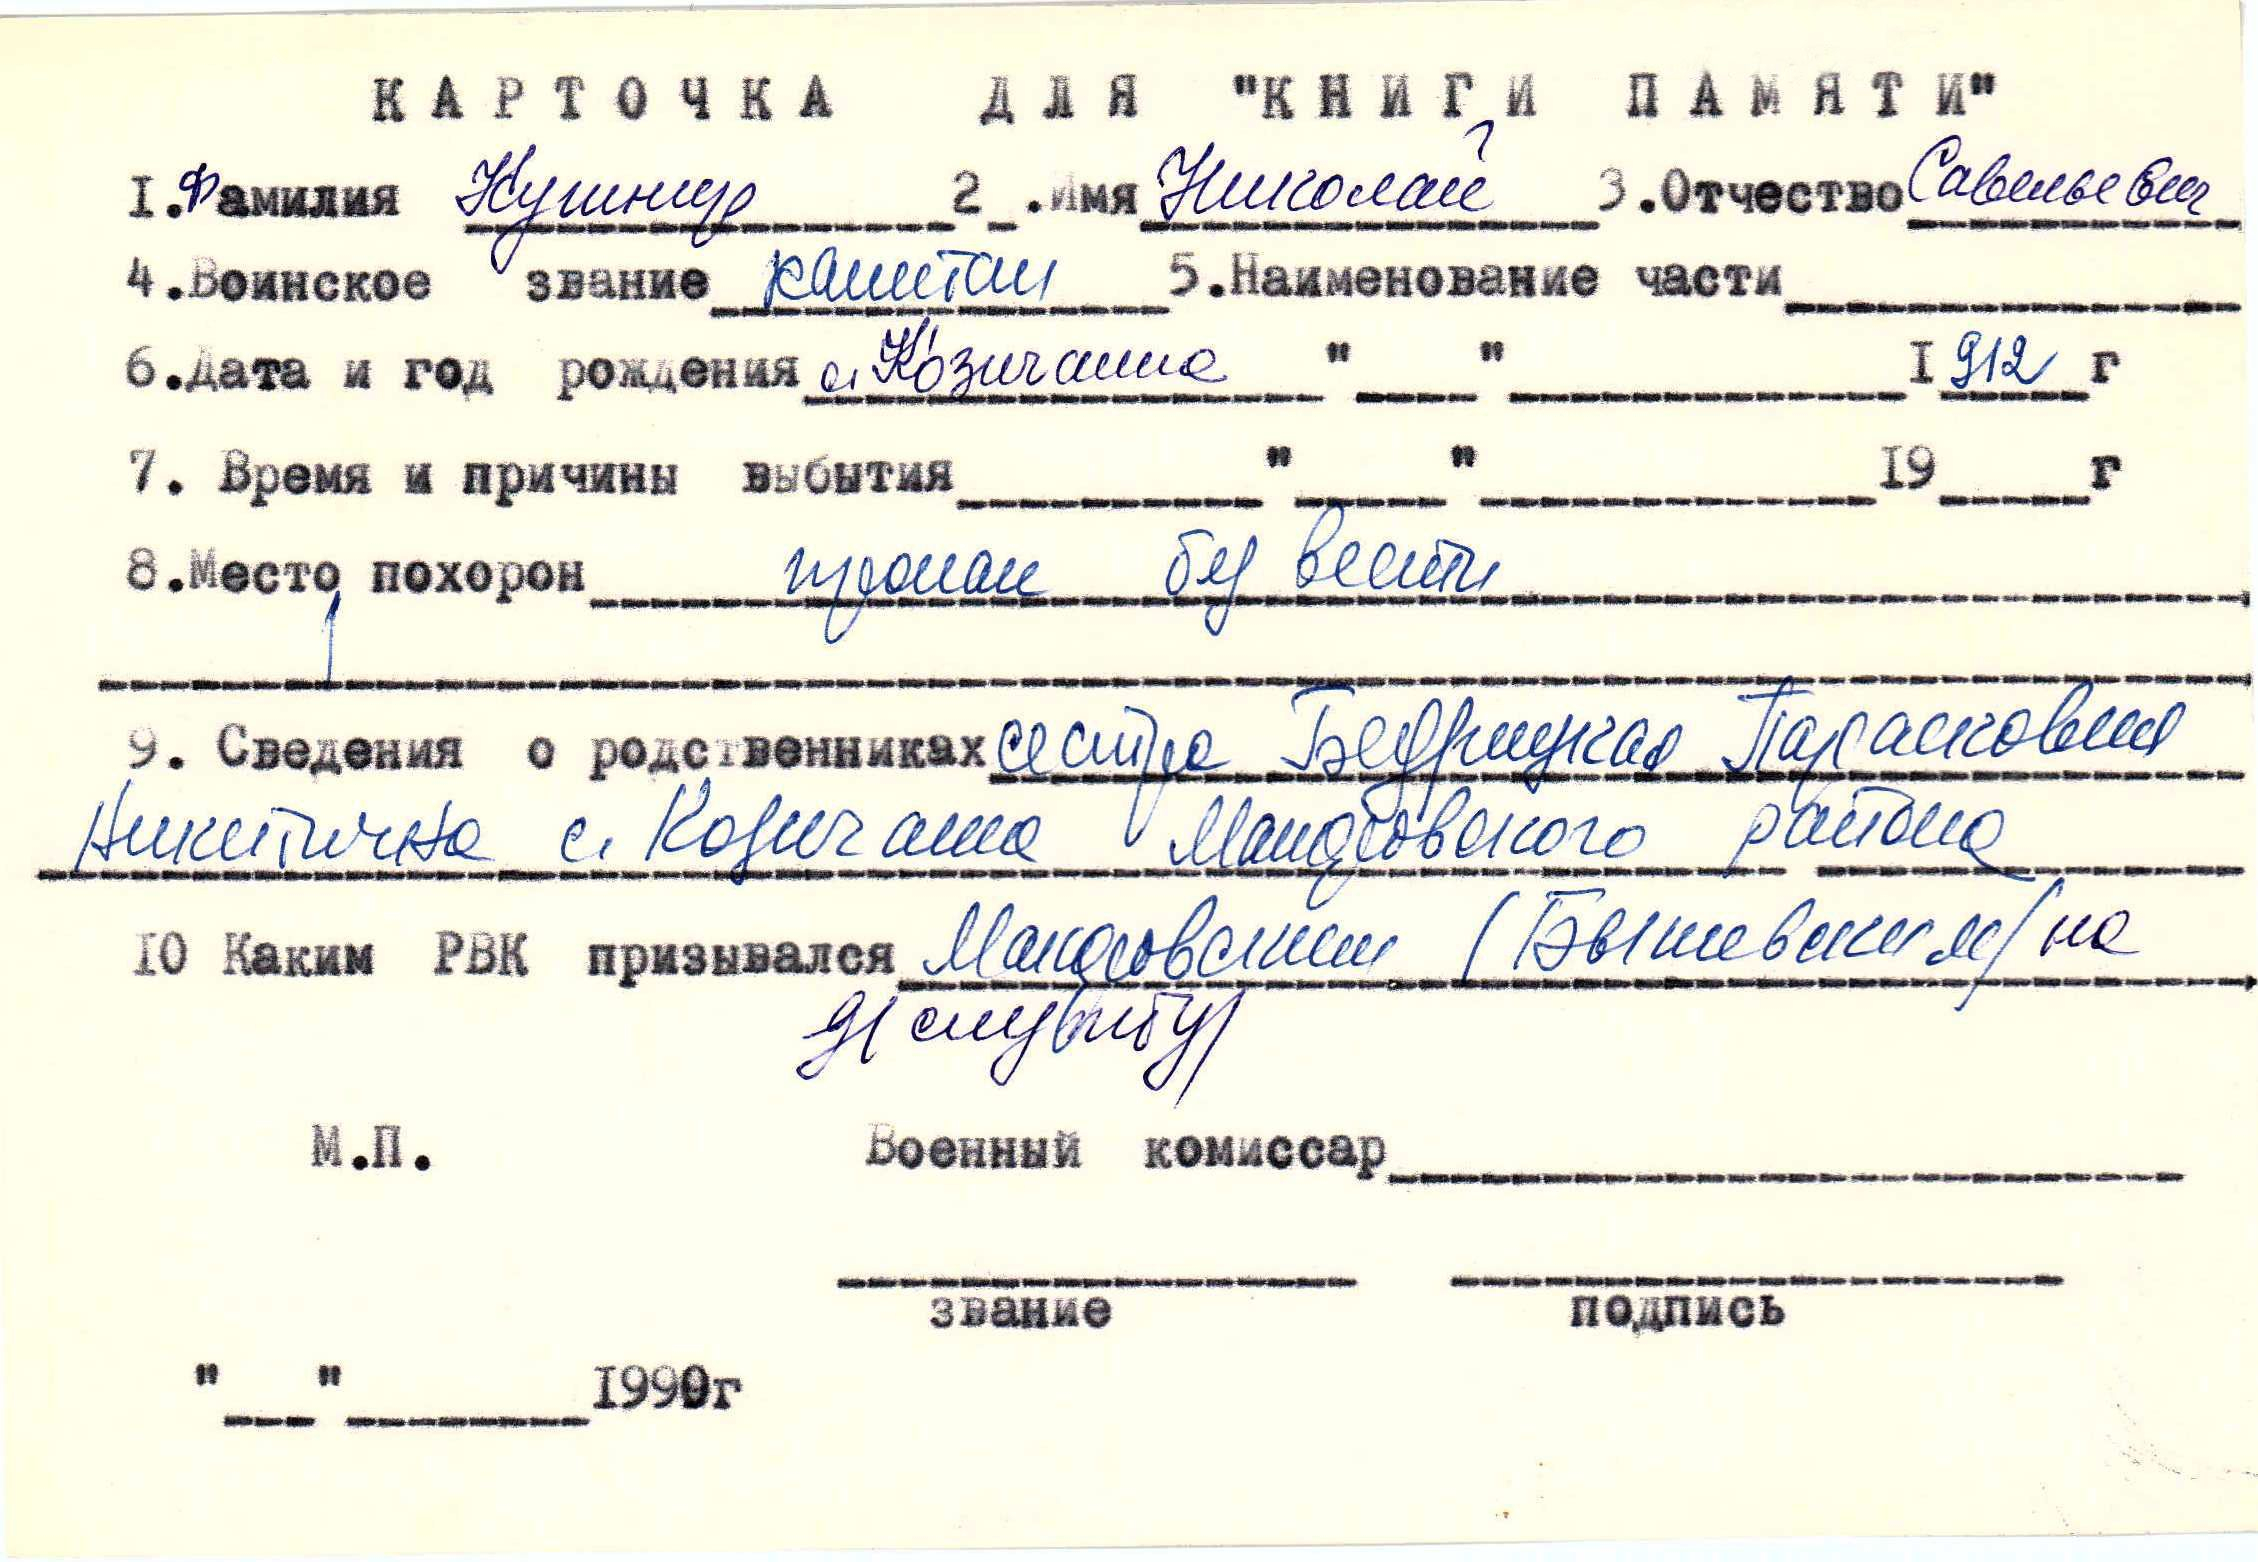 КАРТОЧКА ДЛЯ "КНИГИ ПАМЯТИ"
I.Фамилия Кушнир 2.Имя Николай 3.Отчество Савельевич
4.Воинское звание капитан 5.Наименование части
6.Дата и год рождения с. Козичанка " " I912 г
7. Время и причины выбытия " " I9 г
8.Место похорон пропал без вести
9. Сведения о родственниках сестра Бедрицкая Парасковия
Никитична с. Козичанка Макаровского района
I0 Каким РВК призывался Макаровским (Бышевским) на
д/службу
М.П. Военный комиссар
звание подпись
" " I990г